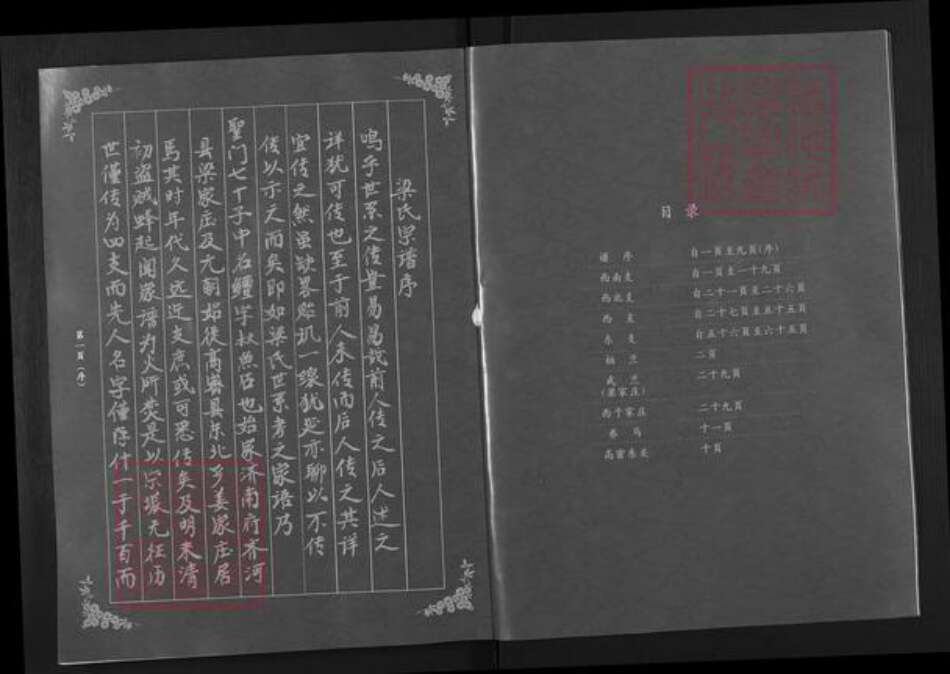 目录
谱序 自一頁至九頁(序)
西南支 自一頁至二十九頁
西北支 自二十一頁至二十六頁
西支 自二十七頁至五十五頁
东支 自五十六頁至六十五頁
二頁
二十九頁
(梁家庄)
西于家庄 二十九頁
养马 十一頁
高密东关 十頁
梁氏宗谱序
鸣乎世系之传岂易易哉前人传之后人述之
详犹可传也至于前人未传而后人传之其详
宜传之然虽缺畧 玑一镮犹 亦聊以不传
传以示天而矣即如梁氏世系考之家语乃
聖门七十子中名鱣字叔魚后也始家济南府齐河
县梁家庄及元朝始徙高密县东北乡姜家庄居
焉其时年代久远近支庶或可悉传矣及明末清
初盗贼蜂起闻家谱为火所焚是以宗 无征历
世仅传为四支而先人名字仅存什一于千百而
第一頁(序)